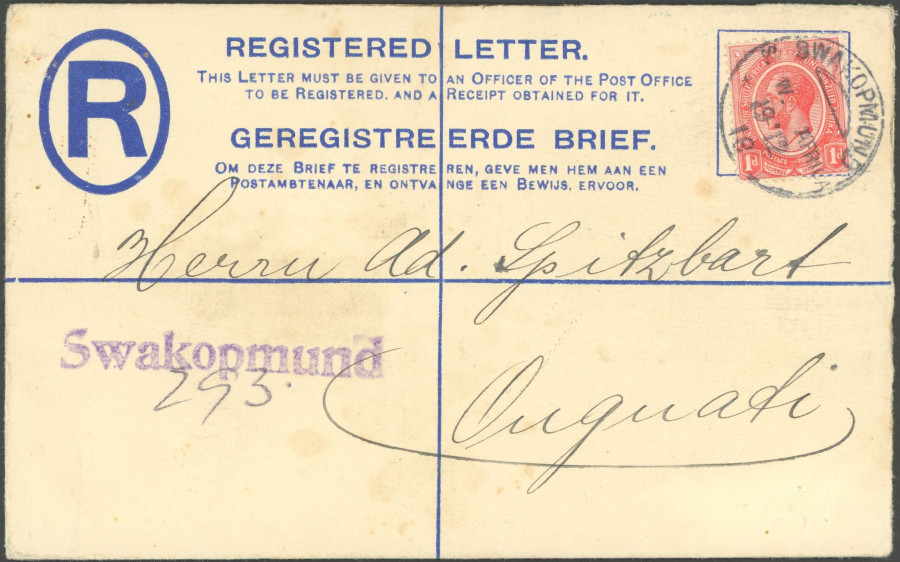 R
REGISTERED LETTER.
THIS LETTER MUST BE GIVEN TO AN OFFICER OF THE POST OFFICE
TO BE REGISTERED, AND A RECEIPT OBTAINED FOR IT.
GEREGISTREERDE BRIEF.
OM DEZE BRIEF TE REGISTREREN, GEVE MEN HEM AAN EEN
POSTAMBTENAAR, EN ONTVANGE EEN BEWIJS, ERVOOR.
SWAKOPMUND
1d 1d
Herrn Ad. Spitzbart
Swakopmund
293.
Onguati